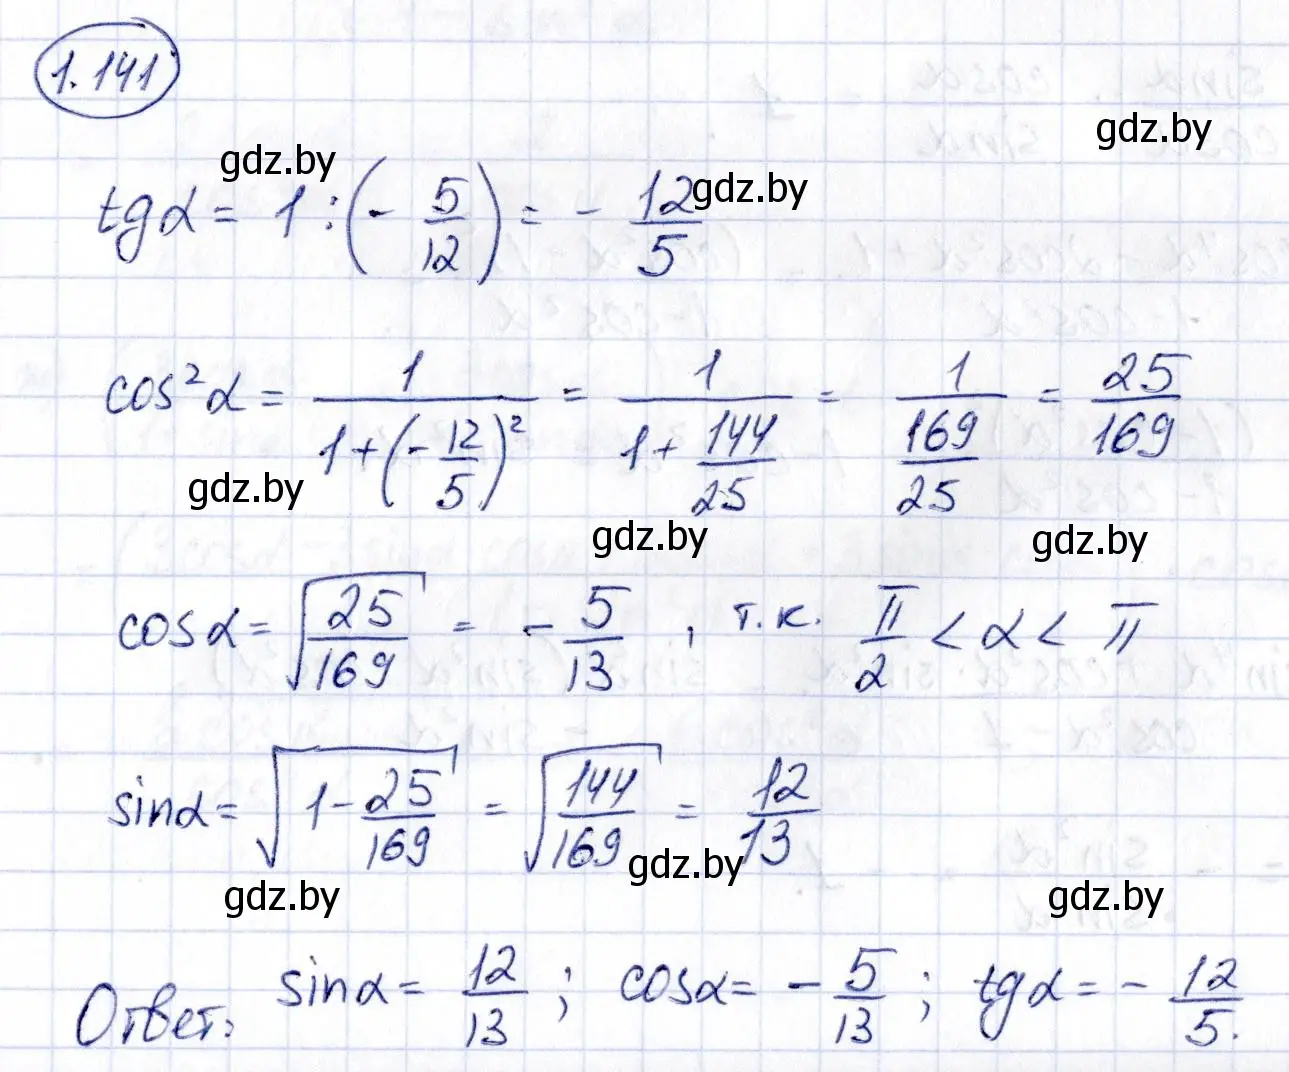 1.141
gdz.by
gdz.by
gdz.by
tgα = 1 : (- 5/12) = - 12/5
cos²α = 1/(1+(-12/5)²) = 1/(1+144/25) = 1/(169/25) = 25/169
gdz.by
gdz.by
gdz.by
cosα = √(25/169) = - 5/13 , т.к. π/2 < α < π
sinα = √(1-25/169) = √(144/169) = 12/13
gdz.by
gdz.by
gdz.by
Ответ: sinα = 12/13 ; cosα = - 5/13 ; tgα = - 12/5.